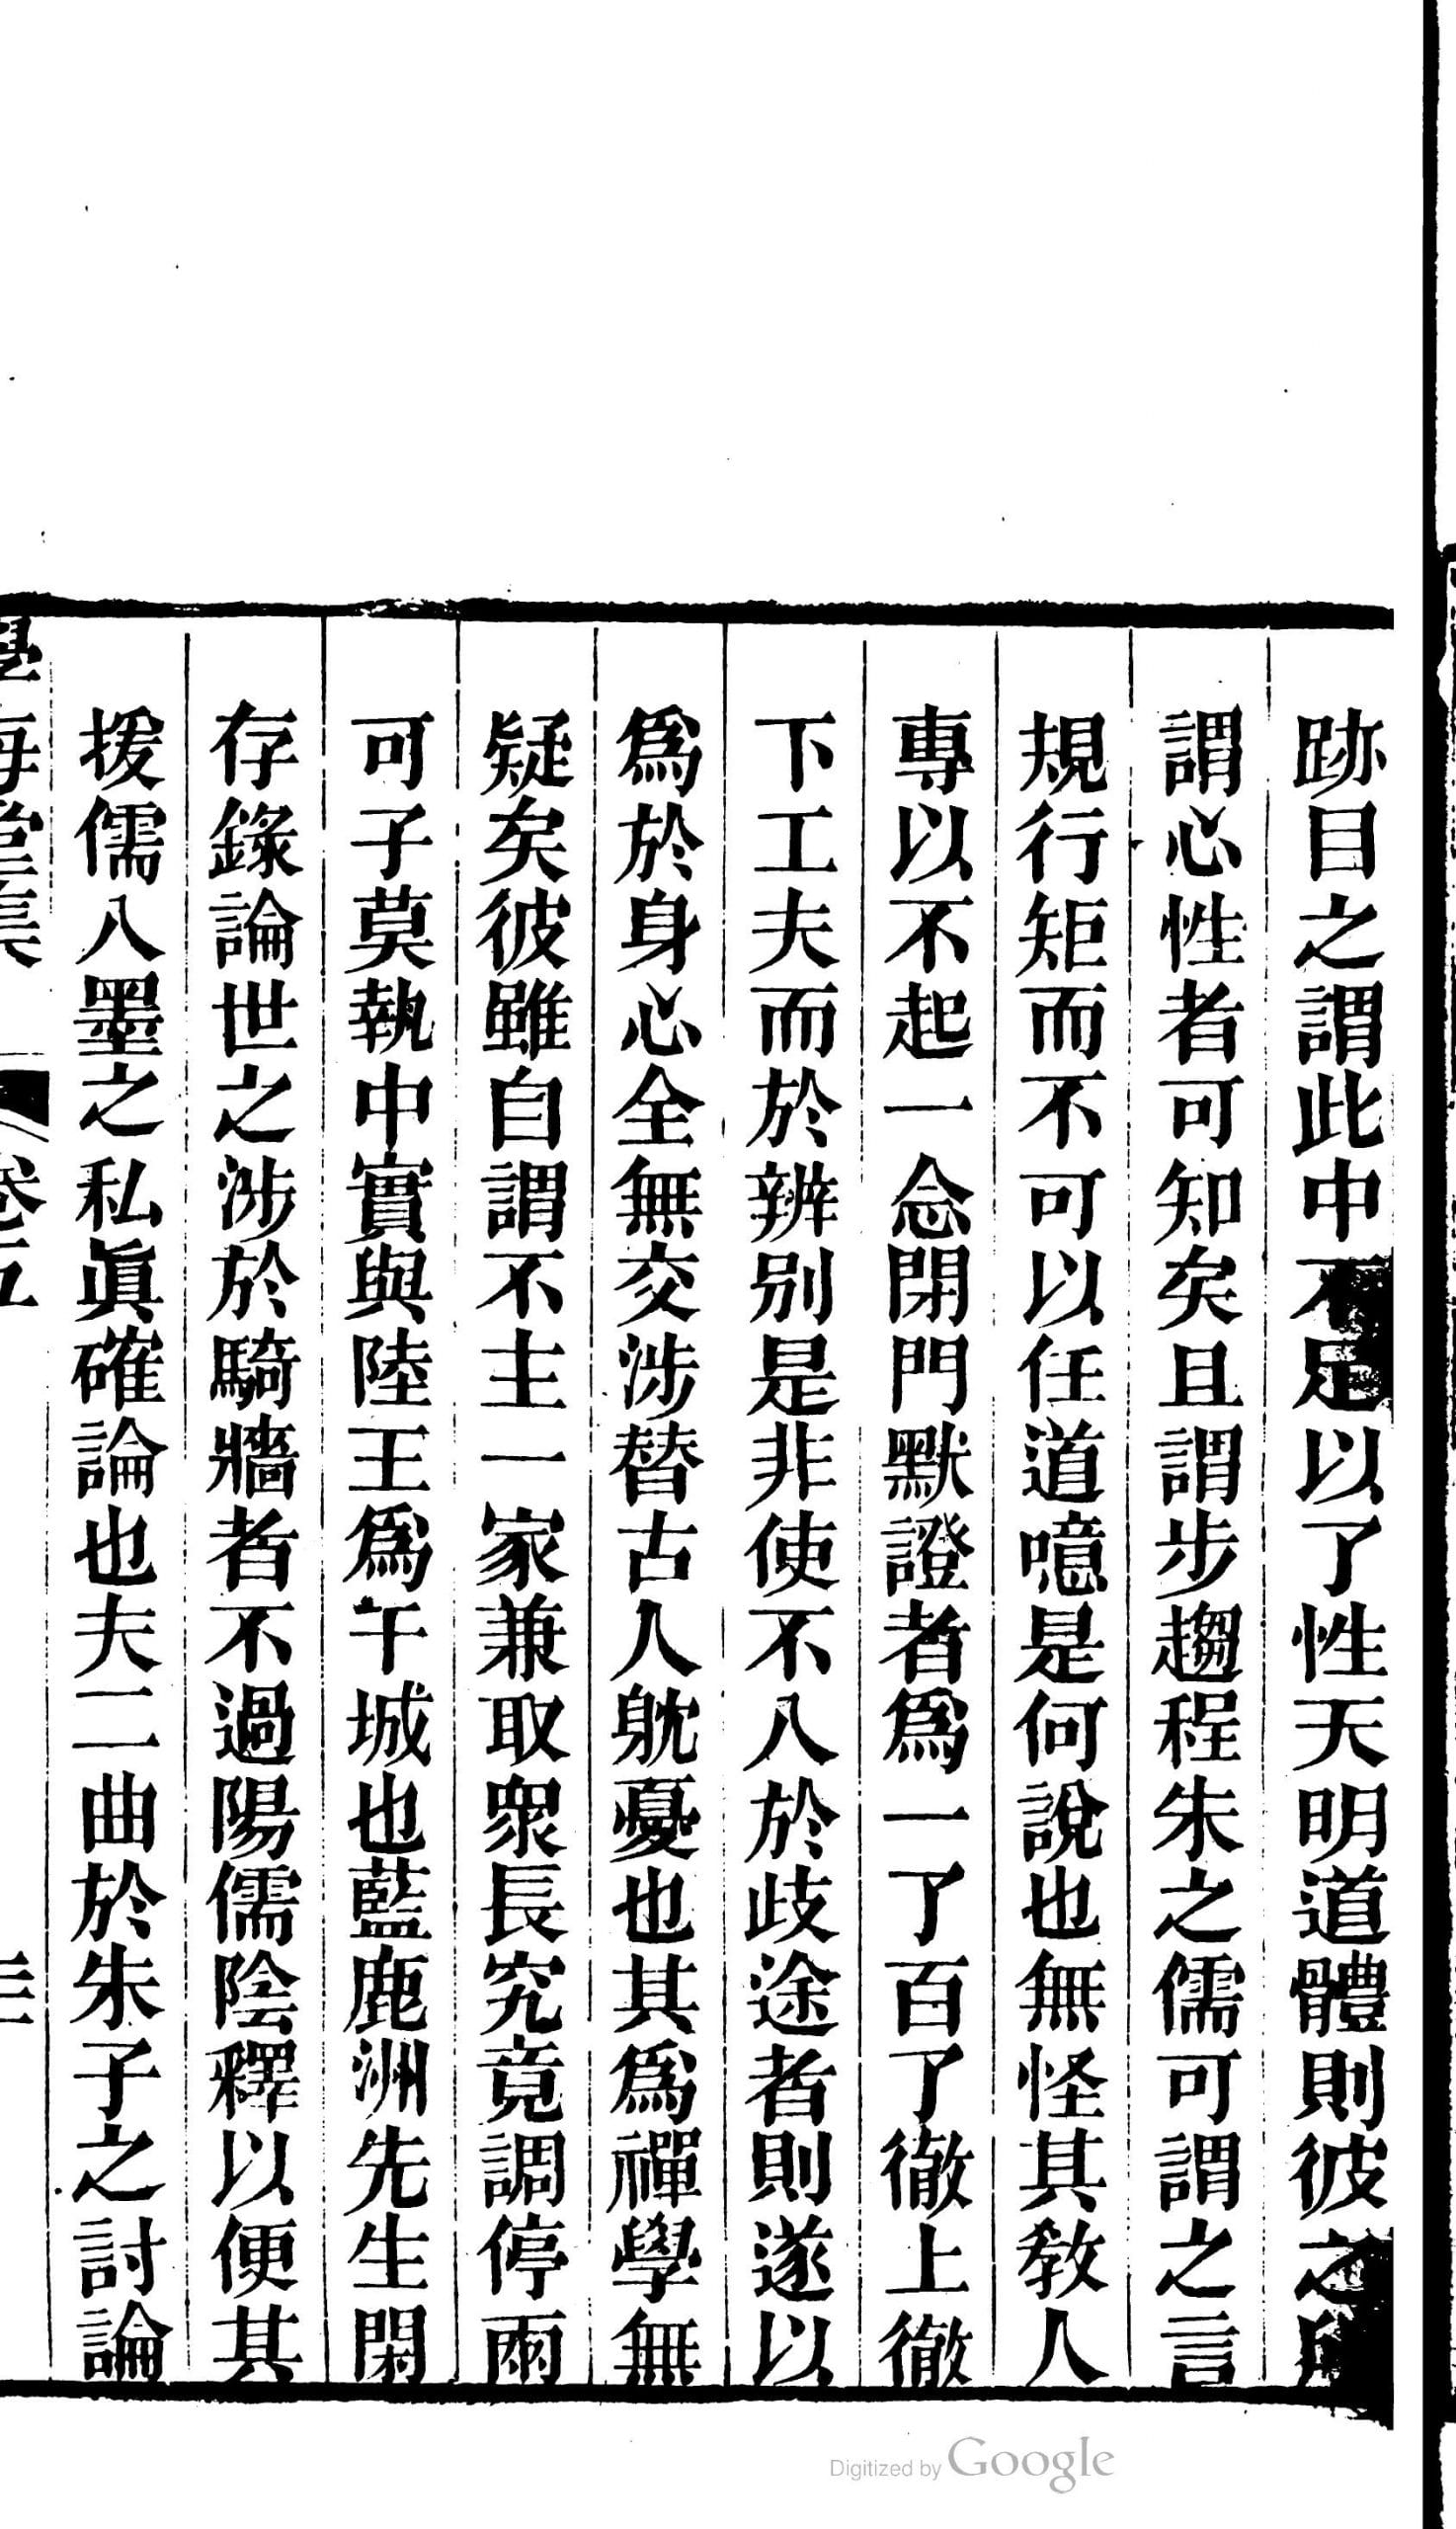 跡目之謂此中不足以了性天明道體則彼之所
謂心性者可知矣且謂步趨程朱之儒可謂之言
規行矩而不可以任道噫是何說也無怪其教人
專以不起一念閉門默證者爲一了百了徹上徹
下工夫而於辨別是非使不入於歧途者則遂以
爲於身心全無交涉替古人躭憂也其爲禪學無
疑矣彼雖自謂不主一家兼取衆長究竟調停兩
可子莫執中實與陸王爲干城也藍鹿洲先生閑
存錄論世之涉於騎牆者不過陽儒陰釋以便其
援儒入墨之私眞確論也夫二曲於朱子之討論
學海堂集 卷五
Digitized by Google